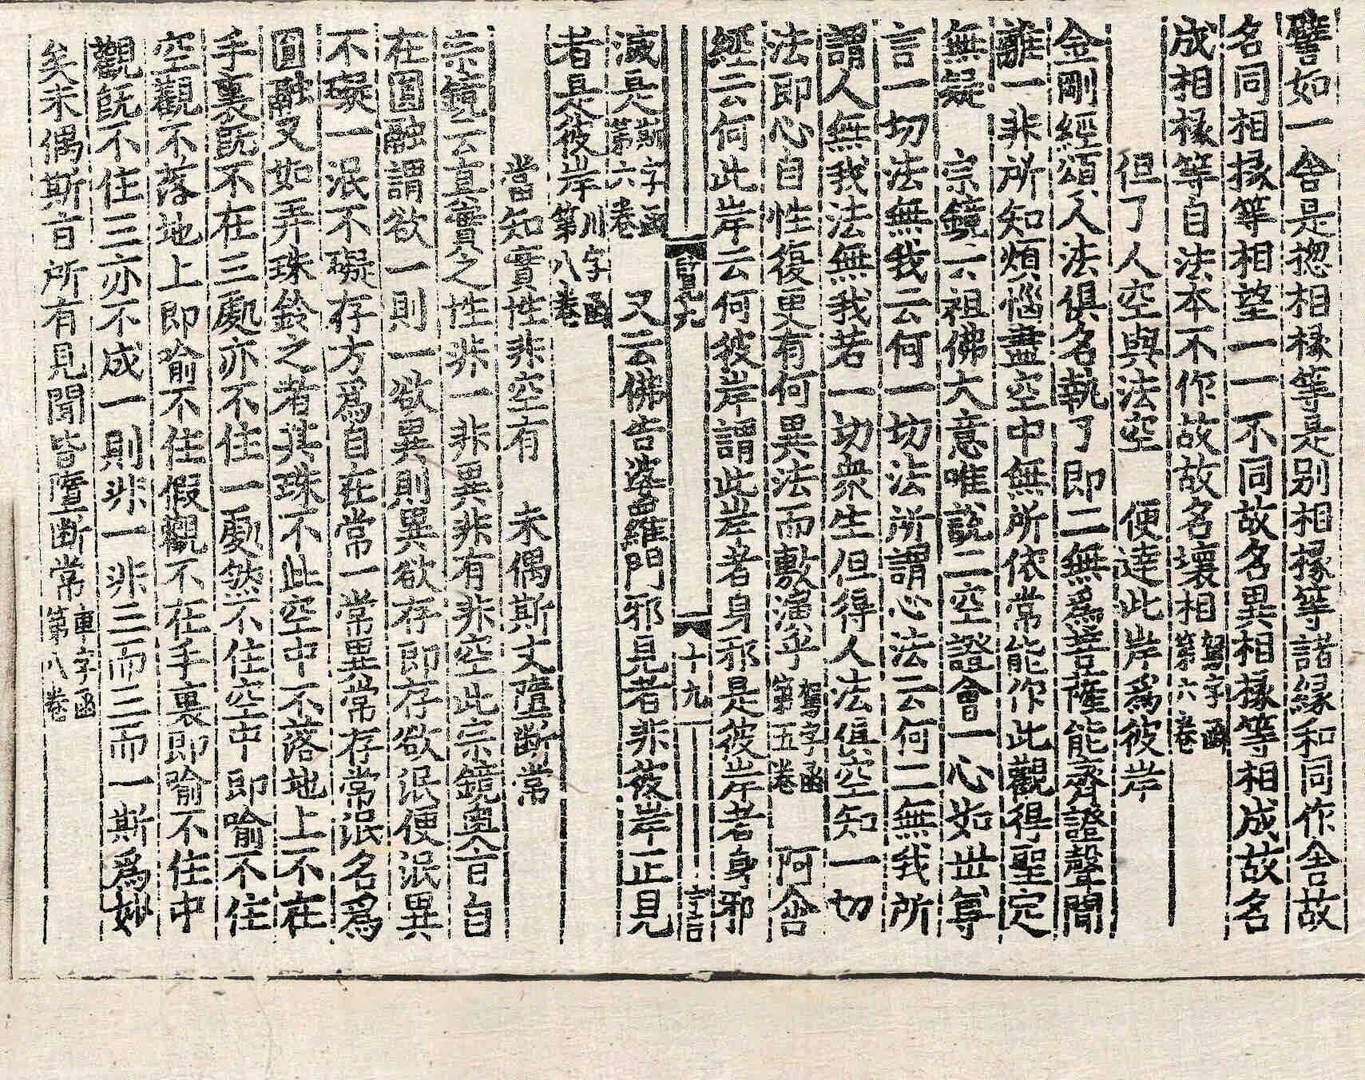 譬如一舍是揔相椽等是别相椽等諸縁和同作舍故
名同相椽等相望一一不同故名異相椽等相成故名
成相椽等自法本不作故故名壞相駕字函第六卷
但了人空與法空　便達此岸爲彼岸
金剛經頌人法俱名執了即二無爲菩薩能齊證聲聞
離一非所知煩惱盡空中無所依常能作此觀得聖定
無疑　宗鏡六祖佛大意唯說二空證會一心如世尊
言一切法無我云何一切法所謂心法云何二無我所
謂人無我法無我若一切衆生但得人法俱空知一切
法即心自性復更有何異法而敷演乎駕字函第五卷　阿含
經云何此岸云何彼岸謂此岸者身邪是彼岸者身邪
十九
滅是斯字函第六卷　又云佛告婆羅門邪見者非彼岸正見
者是彼岸川字函第八卷
當知實性非空有　未偶斯文墮斷常
宗鏡云真實之性非一非異非有非空此宗鏡奧旨自
在圓融謂欲一則一欲異則異欲存即存欲泯便泯異
不礙一泯不礙存方爲自在常一常異常存常泯名爲
圓融又如弄珠鈴之者其珠不此空中不落地上不在
手裏旣不在三處亦不住一處然不住空中即喻不住
空觀不落地上即喻不住假觀不在手裏即喻不住中
觀旣不住三亦不成一則非一非三而三而一斯爲妙
矣未偶斯旨所有見聞皆墮斷常車字函第八卷